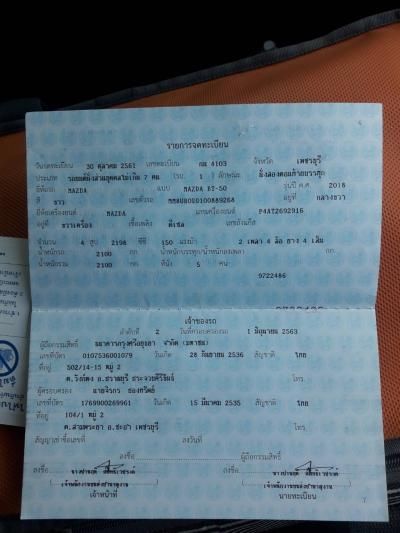 รายการจดทะเบียน
วันจดทะเบียน 30 ตุลาคม 2561 เลขทะเบียน กม 4103 จังหวัด เพชรบุรี
ประเภท รถยนต์นั่งส่วนบุคคลไม่เกิน 7 คน (รย. 1 ) ลักษณะ นั่งสองตอนท้ายบรรทุก
ยี่ห้อรถ MAZDA แบบ MAZDA BT-50 รุ่นปี ค.ศ. 2018
สี ขาว เลขตัวรถ อยู่ที่ กลางขวา
ยี่ห้อเครื่องยนต์ MAZDA เลขเครื่องยนต์ P4AT2692916
อยู่ที่ ขวาเครื่อง เชื้อเพลิง ดีเซล เลขถังแก๊ส
จำนวน 4 สูบ 2198 ซีซี 150 แรงม้า 2 เพลา 4 ล้อ ยาง 4 เส้น
น้ำหนักรถ 2100 กก น้ำหนักบรรทุก/น้ำหนักลงเพลา กก
น้ำหนักรวม 2100 กก ที่นั่ง 5 คน
9722486
เจ้าของรถ
ลำดับที่ 2 วันที่ครอบครองรถ 1 มิถุนายน 2563
ผู้ถือกรรมสิทธิ์ ธนาคารกรุงศรีอยุธยา จำกัด (มหาชน)
เลขที่บัตร 0107536001079 วันเกิด 28 กันยายน 2536 สัญชาติ ไทย
ที่อยู่ 502/14-15 หมู่ 2
ต.วังก์พง อ.ปราณบุรี ประจวบคีรีขันธ์ โทร.
ผู้ครอบครอง นายจักร
เลขที่บัตร 1769900269961 วันเกิด 15 มีนาคม 2535 สัญชาติ ไทย
ที่อยู่ 104/1 หมู่ 2
ต.สามพระยา อ.ชะอำ เพชรบุรี โทร.
สัญญาเช่าซื้อเลขที่ ลงวันที่
ลงชื่อ ผู้ถือกรรมสิทธิ์
ลงชื่อ ลงชื่อ
เจ้าหน้าที่ นายทะเบียน